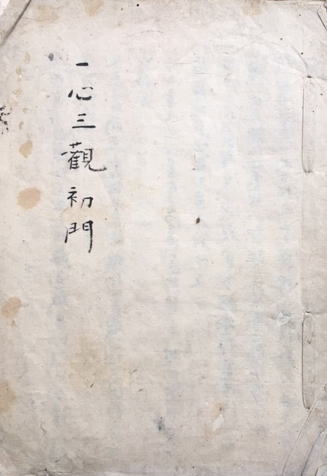 一心三觀初門